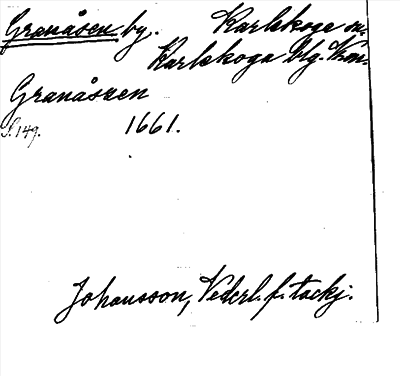 Granåsen by. Karlskoga sn.
Karlskoga blg. Kom.
Granåszen
S. 149. 1661.
Johansson, Vederl. f. tackj.